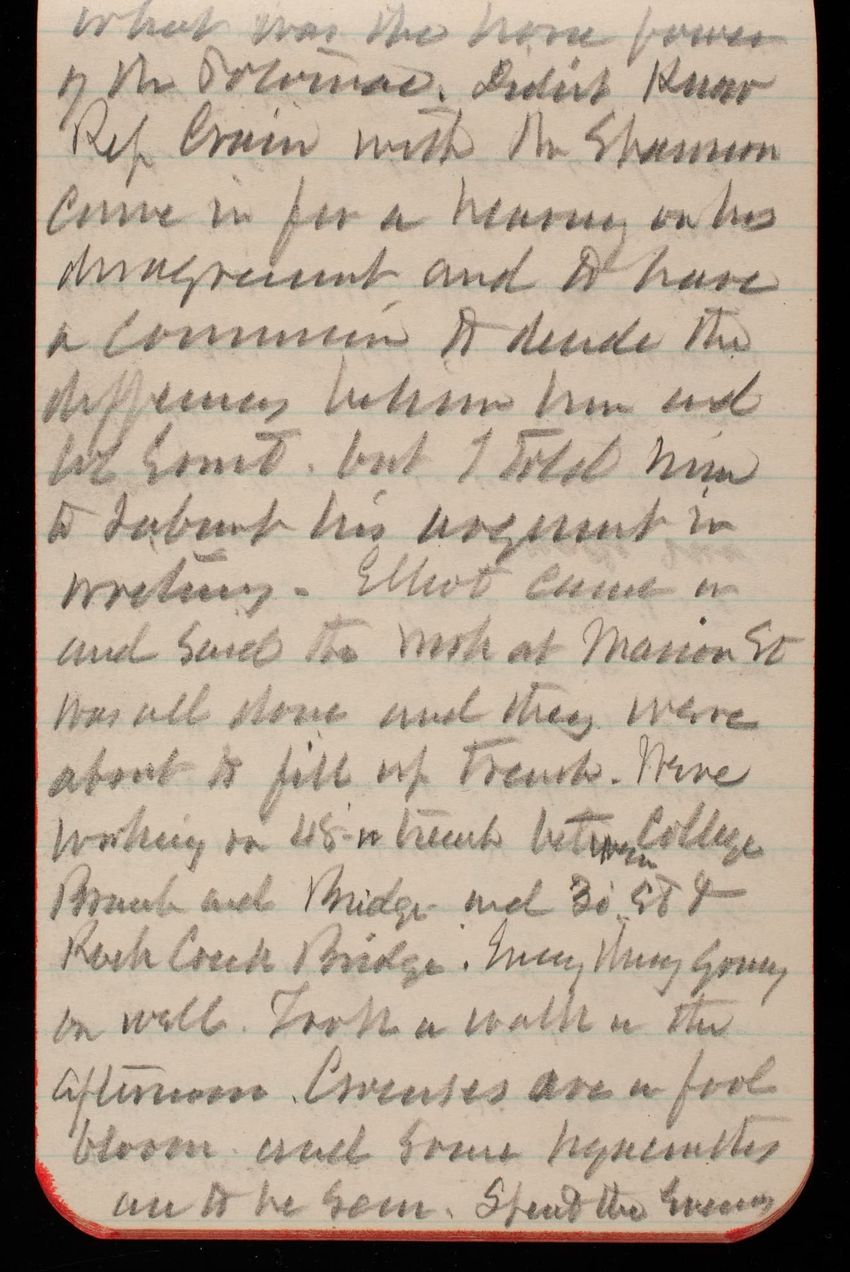 what was the horse power
of the Potomac. Didn't know
Rep Crain with Mr Shannon
came in for a hearing on his
disagreement and to have
a commission to decide the
differences between him and
the Govt. but I told him
to submit his argument in
writing. Elliot came in
and said the work at Marion St
was all done and they were
about to fill up trench. Were
working on 48 in trench between College
Branch and Bridge and 30 St &
Rock Creek Bridge. Everything going
on well. Took a walk in the
afternoon. Crocuses are in full
bloom and some hyacinths
are to be seen. Spent the evening